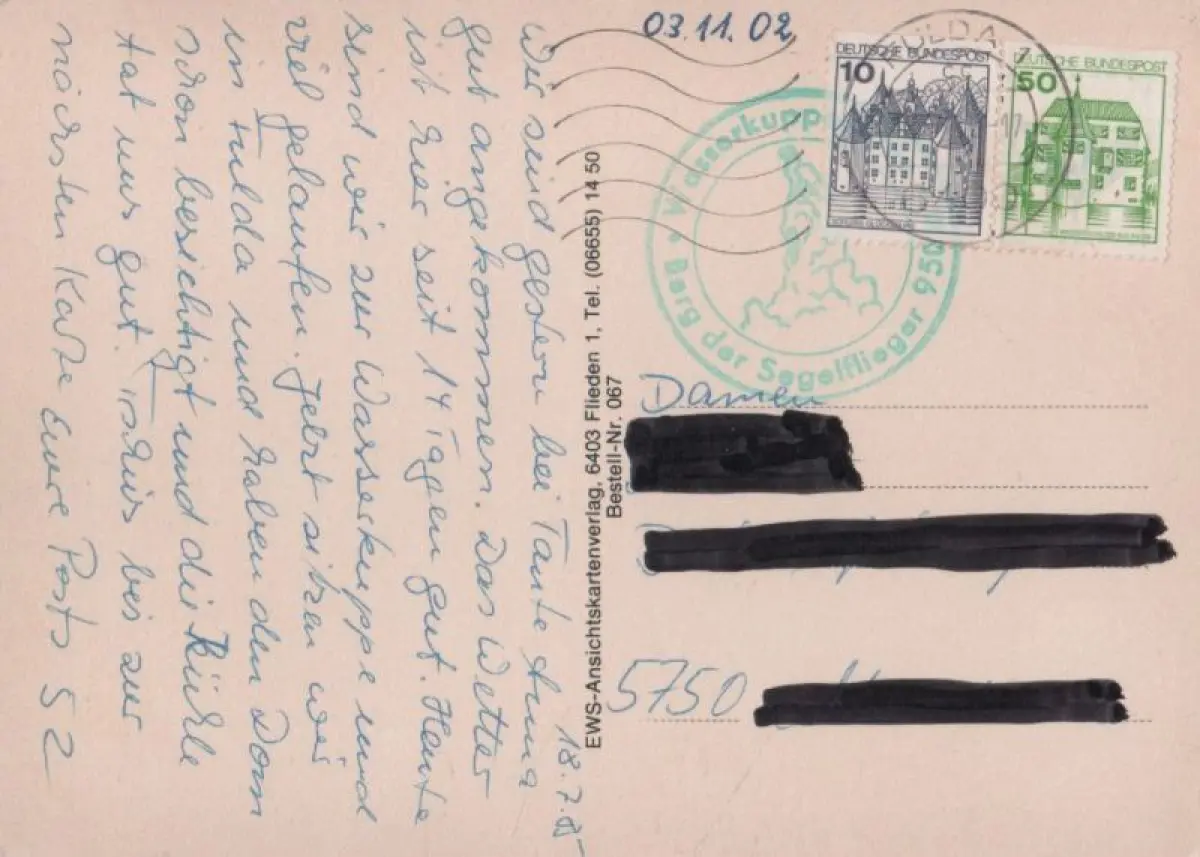 18.7.85
Wir sind gestern bei Tante Anna
gut angekommen. Das Wetter
ist hier seit 14 Tagen gut. Heute
sind wir zur Wasserkuppe und
viel gelaufen. Jetzt sitzen wir
in Fulda und haben den Dom
schon besichtigt und die Kühle
tat uns gut. Tschüs bis zur
nächsten Karte Eure
EWS-Ansichtskartenverlag, 6403 Flieden 1, Tel. (06655) 14 50
Bestell-Nr. 067
03.11.02
DEUTSCHE BUNDESPOST
10
DEUTSCHE BUNDESPOST
50
FULDA
Wasserkuppe
Berg der Segelflieger 950
Damen
5750